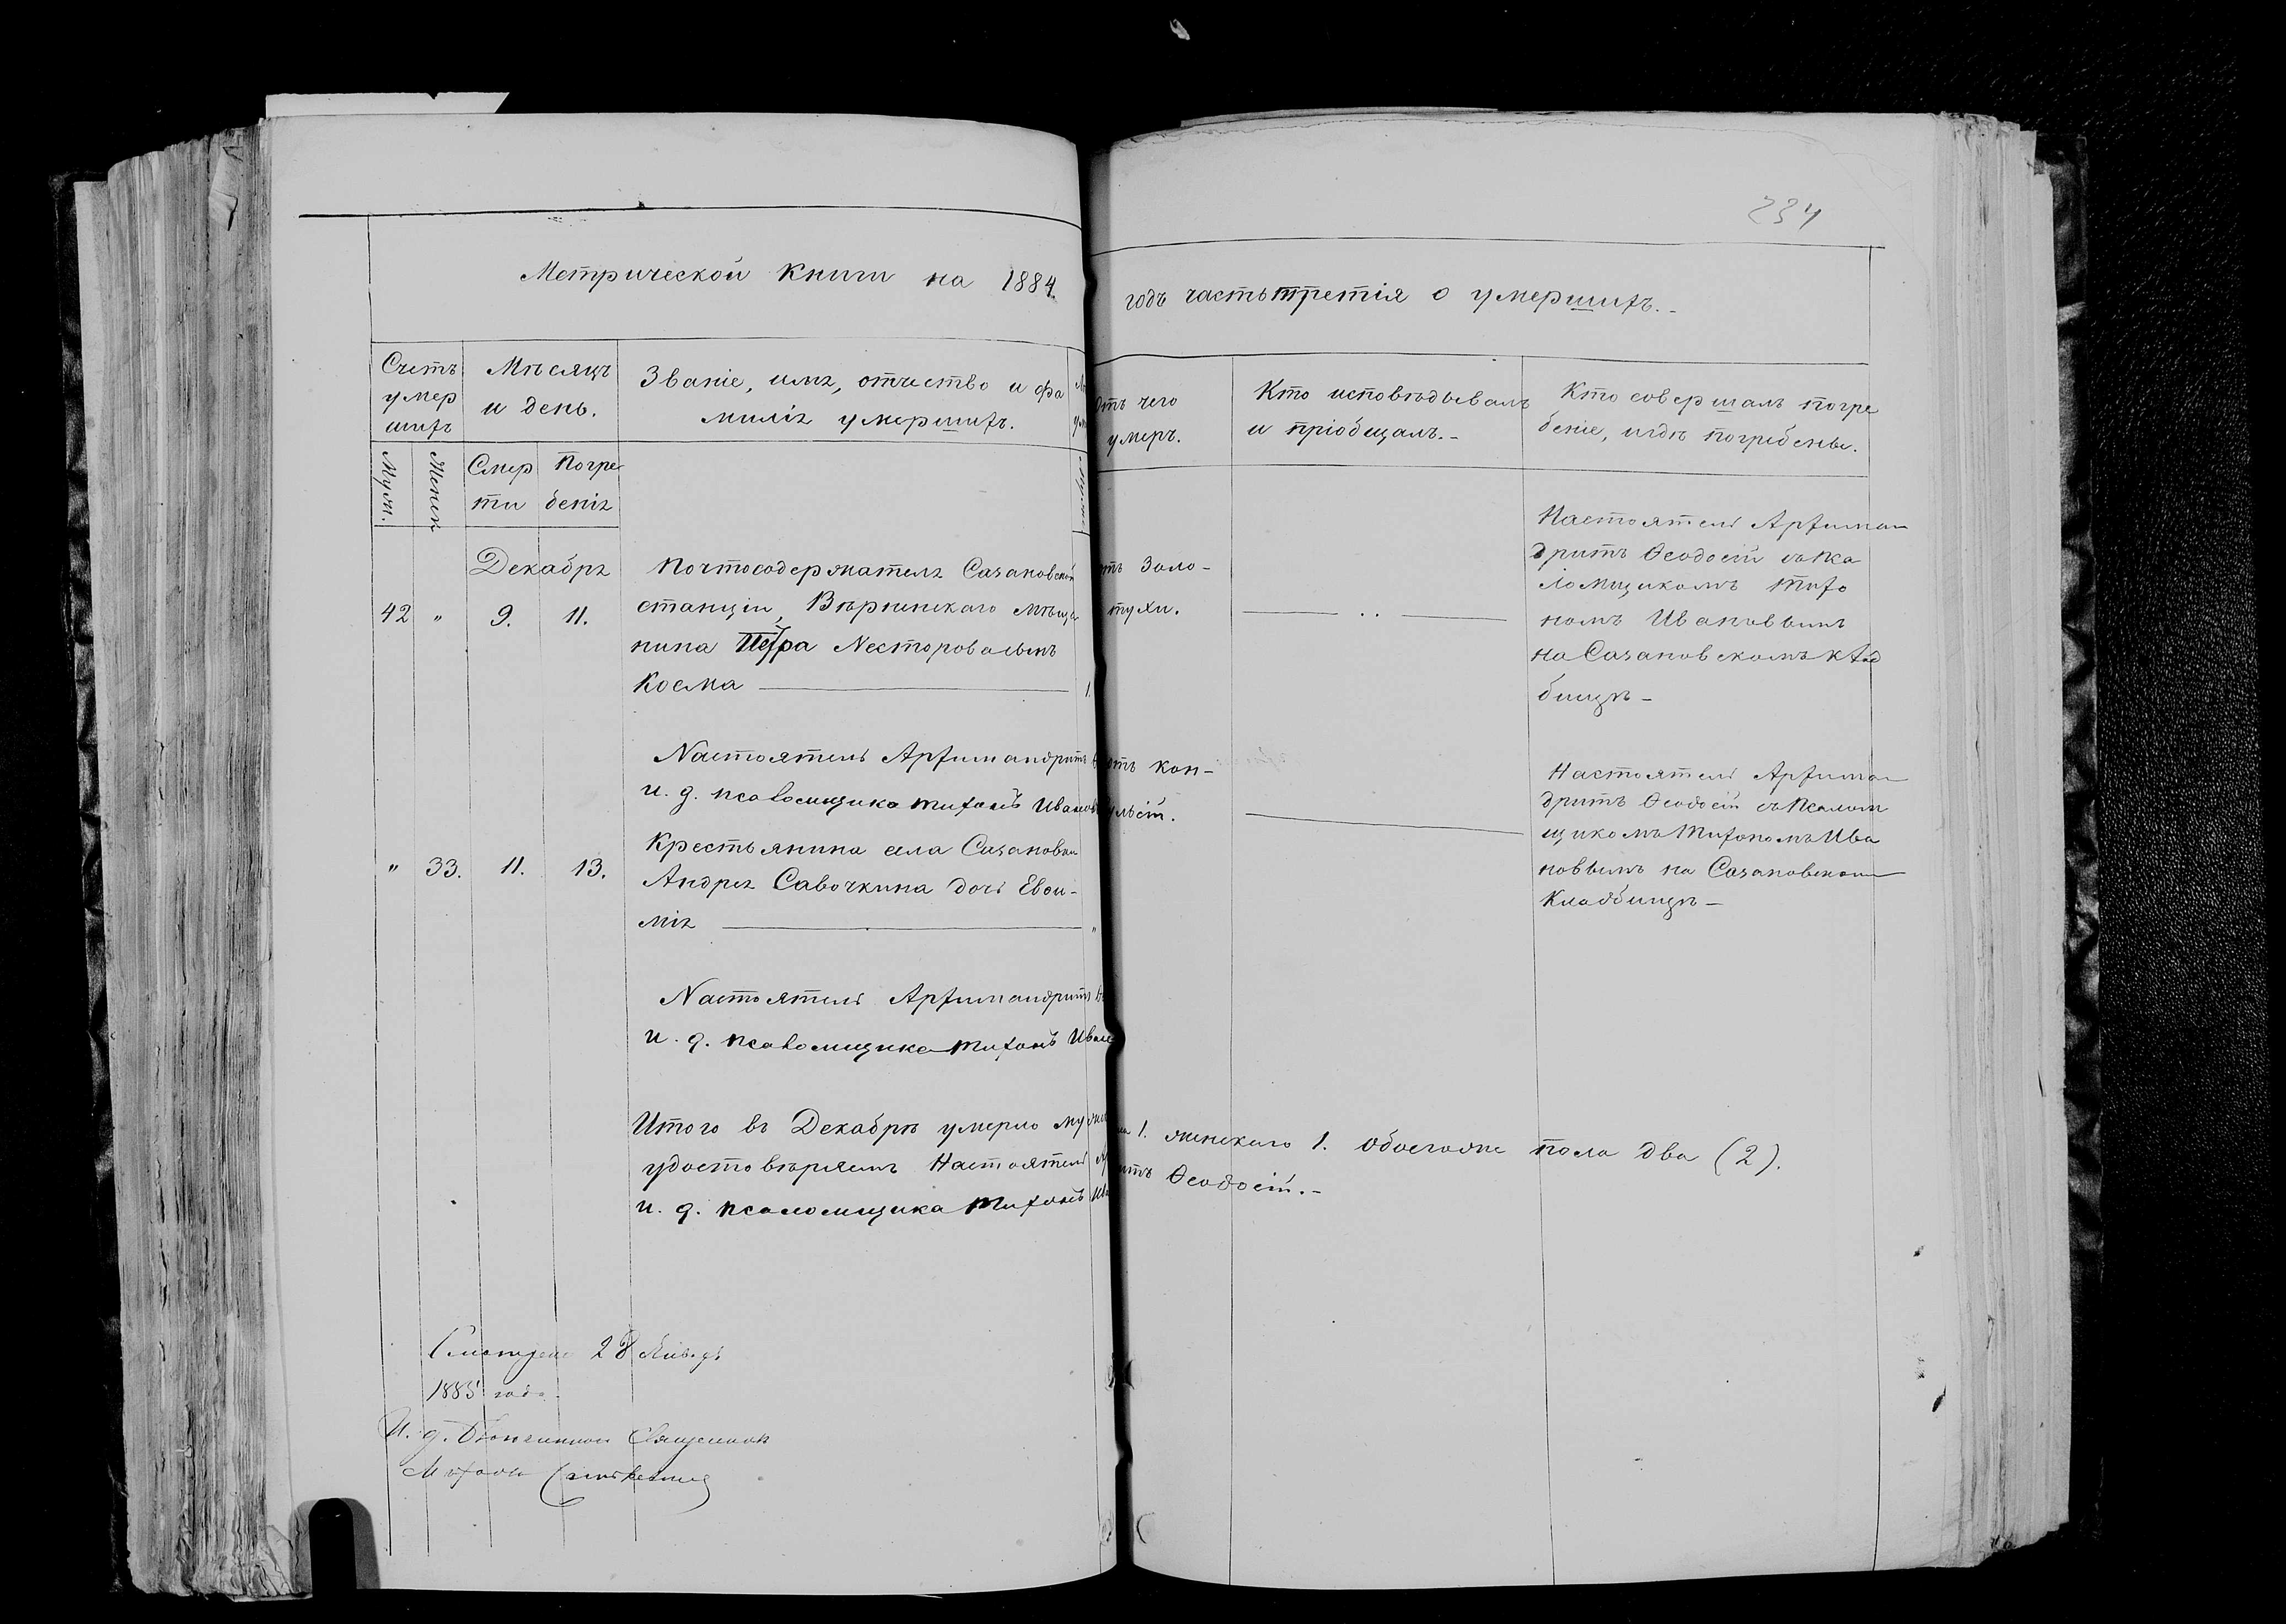 234
Метрической Книги на 1884.
годъ часть третія о умершихъ.-
Счетъ умер шихъ
Мѣсяцъ и день.
Званіе, имя, отчество и фа
милія умершихъ.
Отъ чего
умеръ.
Кто исповѣдывалъ
и пріобщалъ.-
Кто совершалъ погре
беніе, и гдѣ погребены.
Муж.
Женск
Смер
ти
Погре
бенія
Декабря
42 " 9. 11.
Почтосодержателя Сазановской
станціи, Вѣрненскаго мѣща
нина Петра Несторова сынъ
Косма — 1.
отъ Золо-
тухи.
Настоятель Архиман
дритъ Ѳеодосій съ пса
ломщикомъ Тихо
номъ Ивановымъ
на Сазановскомъ клад
бищѣ-
Настоятель Архимандритъ
и. д. псаломщика Тихонъ Иванов
" 33. 11. 13.
Крестьянина села Сазановки
Андрея Савочкина дочь Евѳи-
мія — "
отъ кон-
ульсій.
Настоятель Архиман
дритъ Ѳеодосій съ псалом
щикомъ Тихономъ Ива
новымъ на Сазановском
Кладбищѣ-
Настоятель Архимандритъ
и. д. псаломщика Тихонъ Иван
Итого въ Декабрѣ умерло муж 1. женскаго 1. обоего же пола два (2).
удостовѣряемъ Настоятель Ар итъ Ѳеодосій.-
и. д. псаломщика Тихонъ Ива
Смотрено 28 Январь
1885 года.
И. д. Благочиннаго Священникъ